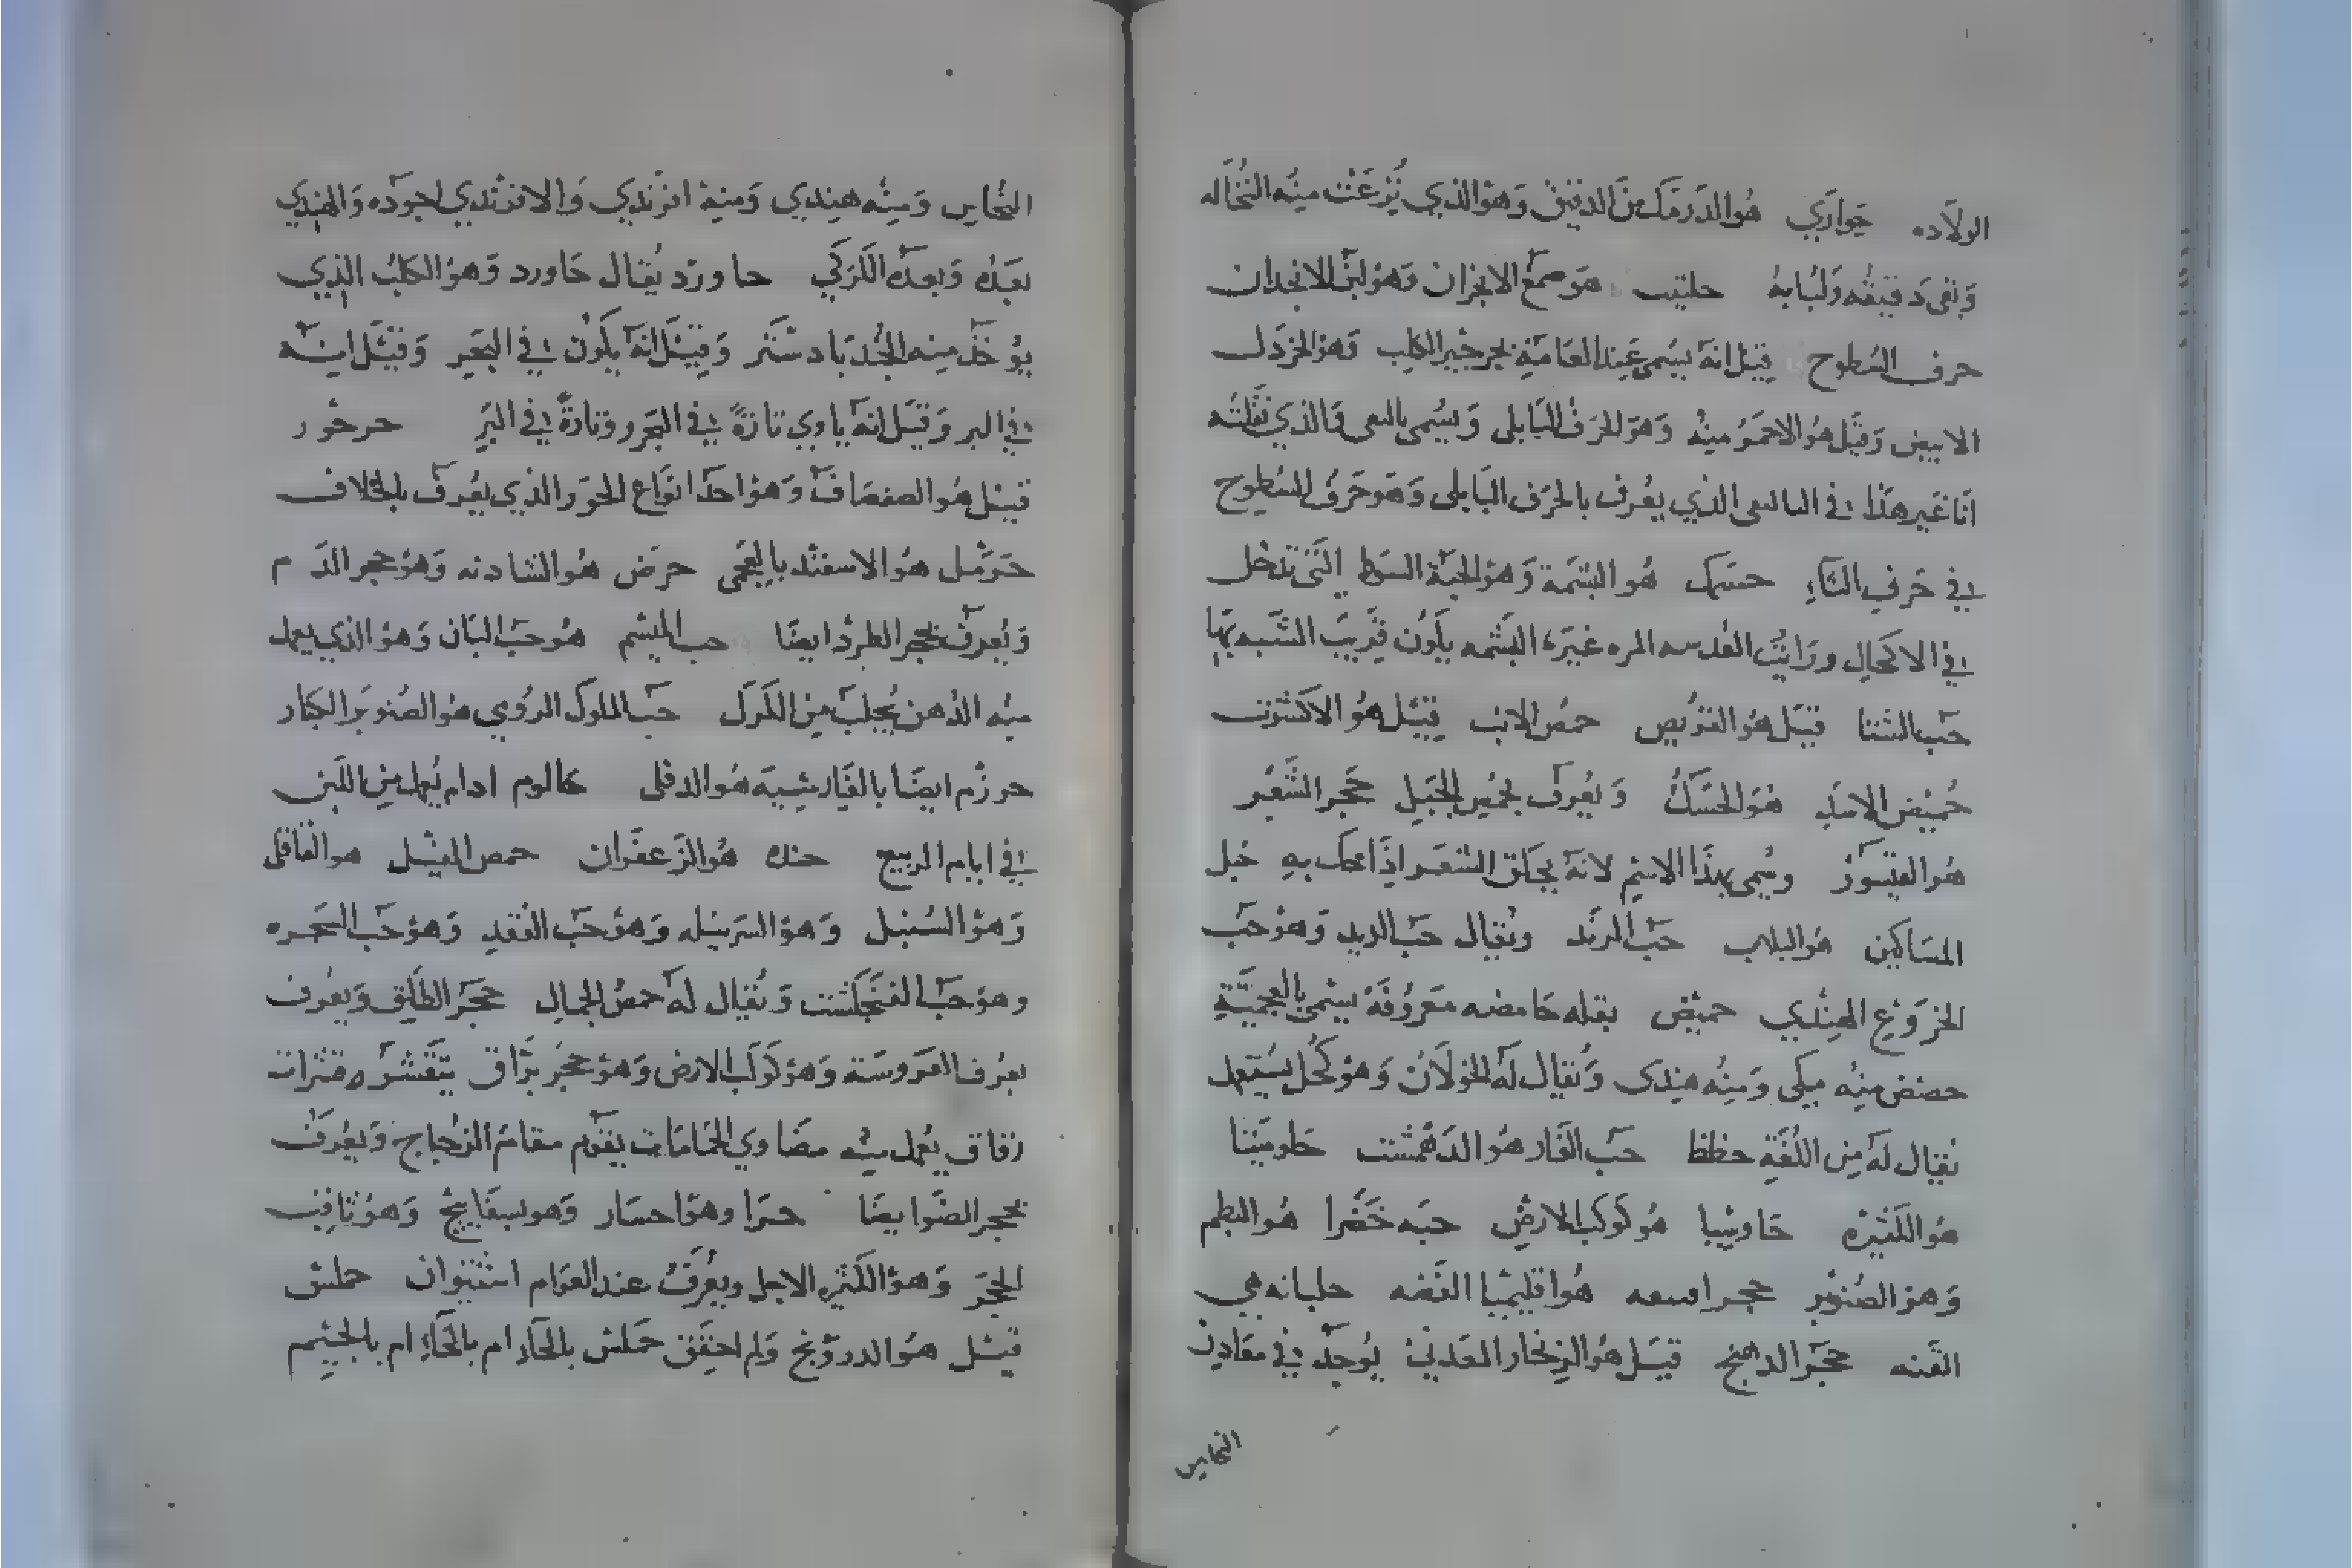 الولاده حواري هو الدرمك من الدقيق وهو الذي نزعت منه النخاله
وبقي دقيقه ولبابه حلتيت هو صمغ الانجزان وهو لبن الانجدان
حرف السطوح قيل انه يسمى عند العامة بحرجير الكلب وهو الخردل
الابيض وقيل هو الاحمر منه وهو الحرف البابلي ويسمى والذي نقلته
انا غير هذا في الذي يعرف بالحرف البابلي وهو حرف السطوح
في حرف التاء حسك هو البشمة وهو الحبة السودا التي تدخل
في الاكحال ورايت المره غيره البشمه يكون قريب الشبه بها
حب الشتا قيل هو حمص الارنب قيل هو الاكشوت
حميض الاسد هو الحسك ويعرف بحمص الجبل حجر الشعر
هو القيسور وسمي بهذا الاسم لانه يحلق الشعر اذا حك به حبل
المساكين هو البلاب حب الرند ويقال حب الديد وهو حب
الخروع الهندي حميض بقله حامضه معروفة يسمى بالعجمية
حضض منه مكي ومنه هندي ويقال له الخولان وهو كحل يستعمل
يقال له من اللغة حظظ حب الغار هو الدهمشت
هو الكثيره حاوشيا هو كوكب الارض حبه خضرا هو البطم
وهو الصنوبر حجر هو اقليميا الفضه حلبانه هي
القنه حجر الدهنج قيل هو الزنجار المعدني يوجد في معادن
النحاس
النحاس ومنه هندي ومنه افرندي والافرندي اجوده والهندي
بعده وبعده الكركي حاورد يقال خاورد وهو الكلب الذي
يوخذ منه الجندبادستر وقيل انه يكون في البحر وقيل انه
في البر وقيل انه ياوي تارة في البحر وتارة في البر
قيل هو الصفصاف وهو احد انواع الحور الذي يعرف بالخلاف
حرمل هو الاسفند بالعجمي حرض هو الشادنه وهو حجر الدم
ويعرف بحجر الطرد ايضا حب الميشم هو حب البان وهو الذي يعمل
منه الدهن يجلب من الكرك حب الملوك الرومي هو الصنوبر الكبار
حرزم ايضا بالفارسية هو الدفلى حالوم ادام يعمل من اللبن
في ايام الربيع هو الزعفران حمص هو القاقلى
وهو السنبل وهو وهو حب الفقد وهو حب
وهو حب الفنجكشت ويقال له حمص الجمال حجر الطلق ويعرف
يعرف العروسة وهو كوكب الارض وهو حجر براق يتقشر
رقاق يعمل منه مضاوي الحمامات يقوم مقام الزجاج ويعرف
بحجر الضو ايضا حرا وهو احسار وهو بسفايج وهو ثاقب
الحجر وهو الكثير الارجل ويعرف عند العوام اشتيوان حملش
قيل هو الدرونج ولم احقق حملش بالحاء ام بالخاء ام بالجيم